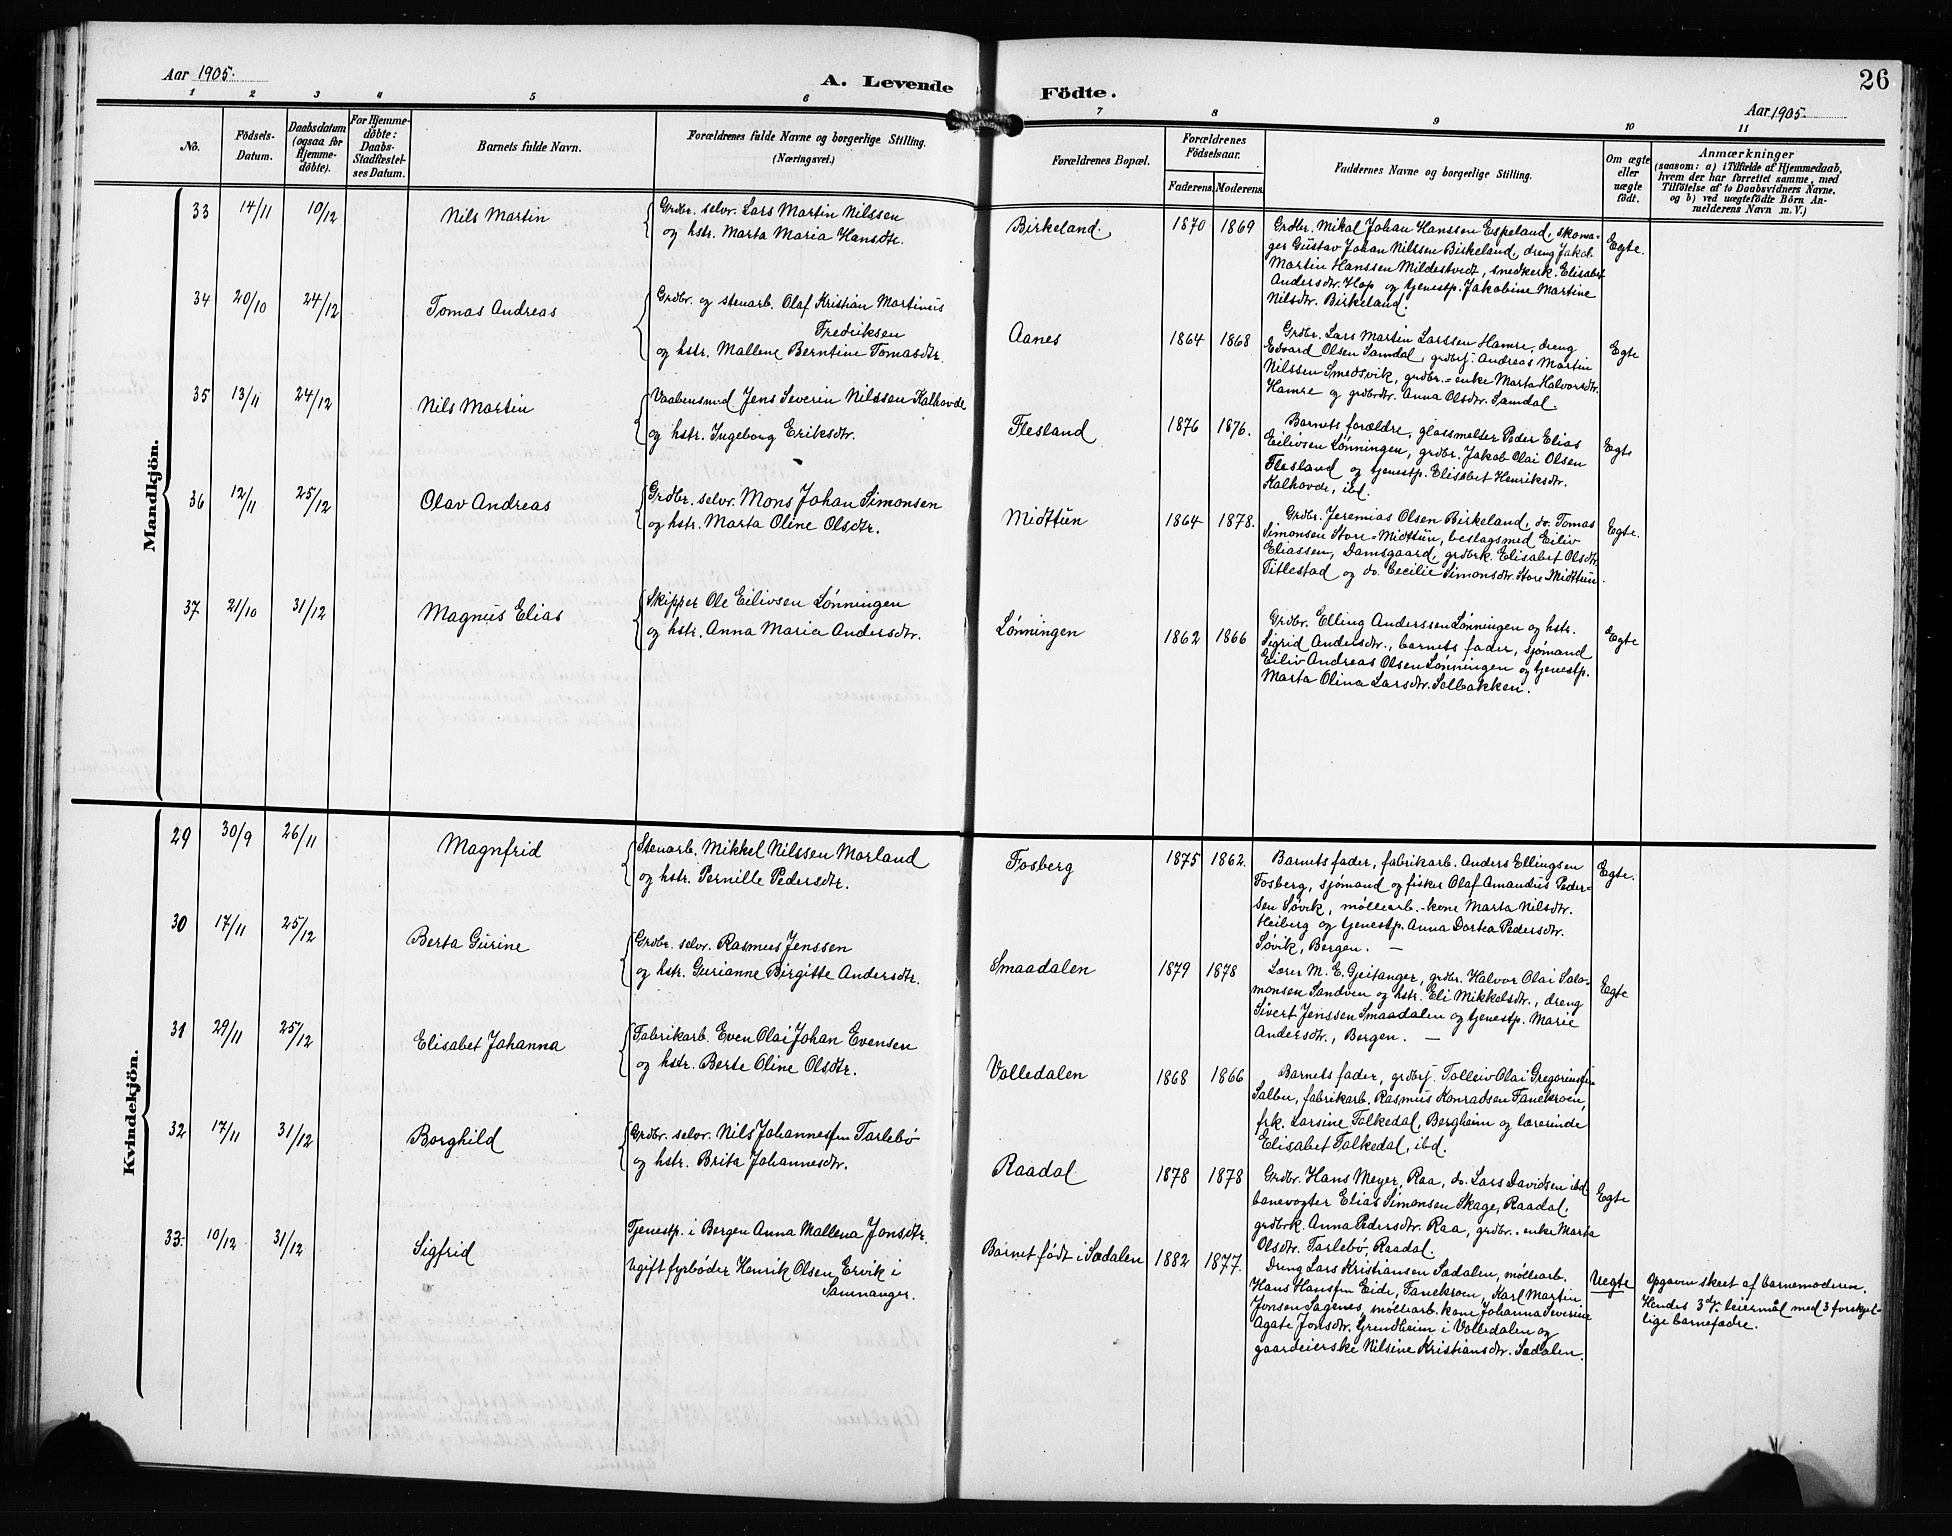 Aar 1905.
A. Levende Födte.
26
Aar 1905.
1 2 3 4 5 6 7 8 9 10 11
No.
Födsels-
Datum.
Daabsdatum
(ogsaa for
Hjemme-
döbte).
For Hjemme-
döbte:
Daabs-
Stadfæstel-
ses Datum.
Barnets fulde Navn.
Forældrenes fulde Navne og borgerlige Stilling.
(Næringsvei.)
Forældrenes Bopæl.
Forældrenes
Födselsaar.
Faderens. Moderens.
Faddernes Navne og borgerlige Stilling.
Om ægte
eller
uægte
födt.
Anmærkninger
(saasom: a) i Tilfælde af Hjemmedaab,
hvem der har forrettet samme, med
Tilföielse af to Daabsvidners Navne,
og b) ved uægtefödte Börn An-
melderens Navn m. V.)
Mandkjön.
33 14/11 10/12 Nils Martin
Grdbr. selv. Lars Martin Nilssen
og hstr. Marta Maria Hansdtr.
Birkeland. 1870 1869
Grdbr. Mikal Johan Hanssen Espeland, skoma-
ger Gustav Johan Nilssen Birkeland, dreng Jakob
Martin Hanssen Mildestvedt, snedkerk. Elisabet
Andersdtr. Hop og tjenestp. Jakobine Martine
Nilsdtr. Birkeland.
Egte.
34 20/10 24/12 Tomas Andreas
Grdbr. og stenarb. Olaf Kristian Martinus
Fredriksen
og hstr. Mallene Berntine Tomasdtr.
Aanes 1864 1868
Grdbr. Lars Martin Larssen Hamre, dreng
Edvard Olsen Samdal, grdbrf. Andreas Martin
Nilssen Smedsvik, grdbr.=enke Marta Halvorsdtr.
Hamre og grdbrdtr. Anna Olsdtr. Samdal
Egte
35 13/11 24/12 Nils Martin
Vaabensmed Jens Severin Nilssen Kalhovde
og hstr. Ingeborg Eriksdtr.
Flesland 1876 1876.
Barnets forældre, glassmelter Peder Elias
Eilivsen Lønningen, grdbr. Jakob Olai Olsen
Flesland og tjenestp. Elisabet Henriksdtr.
Kalhovde, ibd.
Egte
36 12/11 25/12 Olav Andreas
Grdbr. selv. Mons Johan Simonsen
og hstr. Marta Oline Olsdtr.
Midttun 1864 1878.
Grdbr. Jeremias Olsen Birkeland, do. Tomas
Simonsen Store=Midttun, beslagsmed Eiliv
Eliassen, Damsgaard, grdbrk. Elisabet Olsdtr.
Titlestad og do. Cecilie Simonsdtr. Store Midttun.
Egte.
37 21/10 31/12 Magnus Elias
Skipper Ole Eilivsen Lønningen
og hstr. Anna Maria Andersdtr.
Lønningen 1862 1866
Grdbr. Elling Anderssen Lønningen og hstr.
Sigrid Andersdtr., barnets fader, sjømand
Eiliv Andreas Olsen Lønningen og tjenestp.
Marta Olina Larsdtr. Solbakken.
Egte
Kvindekjön.
29 30/9 26/11 Magnfrid
Stenarb. Mikkel Nilssen Morland
og hstr. Pernille Pedersdtr.
Fosberg 1875 1862.
Barnets fader, fabrikarb. Anders Ellingsen
Fosberg, sjømand og fisker Olaf Amandus Peder-
sen Søvik, møllearb.-kone Marta Nilsdtr.
Heiberg og tjenestp. Anna Dortea Pedersdtr.
Søvik, Bergen. —
Egte.
30 17/11 25/12 Berta Gurine
Grdbr. selv. Rasmus Jenssen
og hstr. Gurianne Birgitte Andersdtr.
Smaadalen 1879 1878
Lærer M. E. Gjeitanger, grdbr. Halvor Olai Salo-
monsen Sandven og hstr. Eli Mikkelsdtr., dreng
Sivert Jenssen Smaadalen og tjenestp. Marie
Andersdtr., Bergen. —
Egte
31 29/11 25/12 Elisabet Johanna
Fabrikarb. Even Olai Johan Evensen
og hstr. Berte Oline Olsdtr.
Volledalen 1868 1866
Barnets fader, grdbrf. Tolleiv Olai Gregoriussen
Salbu, fabrikarb. Rasmus Konradsen Fanekroen,
frk. Larsine Folkedal, Bergheim og lærerinde
Elisabet Folkedal, ibd.
32 17/11 31/12 Borghild
Grdbr. selv. Nils Johannessen Tarlebø
og hstr. Brita Johannesdtr.
Raadal 1878 1878
Grdbr. Hans Meyer, Raa, do. Lars Davidsen ibd
banevogter Elias Simonsen Skage, Raadal,
grdbrk. Anna Pedersdtr. Raa, grdbr.-enke Marta
Olsdtr. Tarlebø, Raadal.
Egte
33. 10/12 31/12 Sigfrid
Tjenestp. i Bergen Anna Mallena Jonsdtr.
Ugift fyrbøder Henrik Olsen Ervik i
Samnanger.
Barnet født i Sædalen 1882 1877.
Dreng Lars Kristiansen Sædalen, møllearb.
Hans Hanssen Eide, Fanekroen, Karl Martin
Jonsen Sagenes, møllearb. kone Johanna Severine
Agate Jonsdtr. Grendheim i Volledalen og
gaardeierske Nilsine Kristiansdtr. Sædalen.
Uegte
Opgaven skeet af barnemoderen.
Hendes 3die leiermål med 3 forskjel-
lige barnefædre.